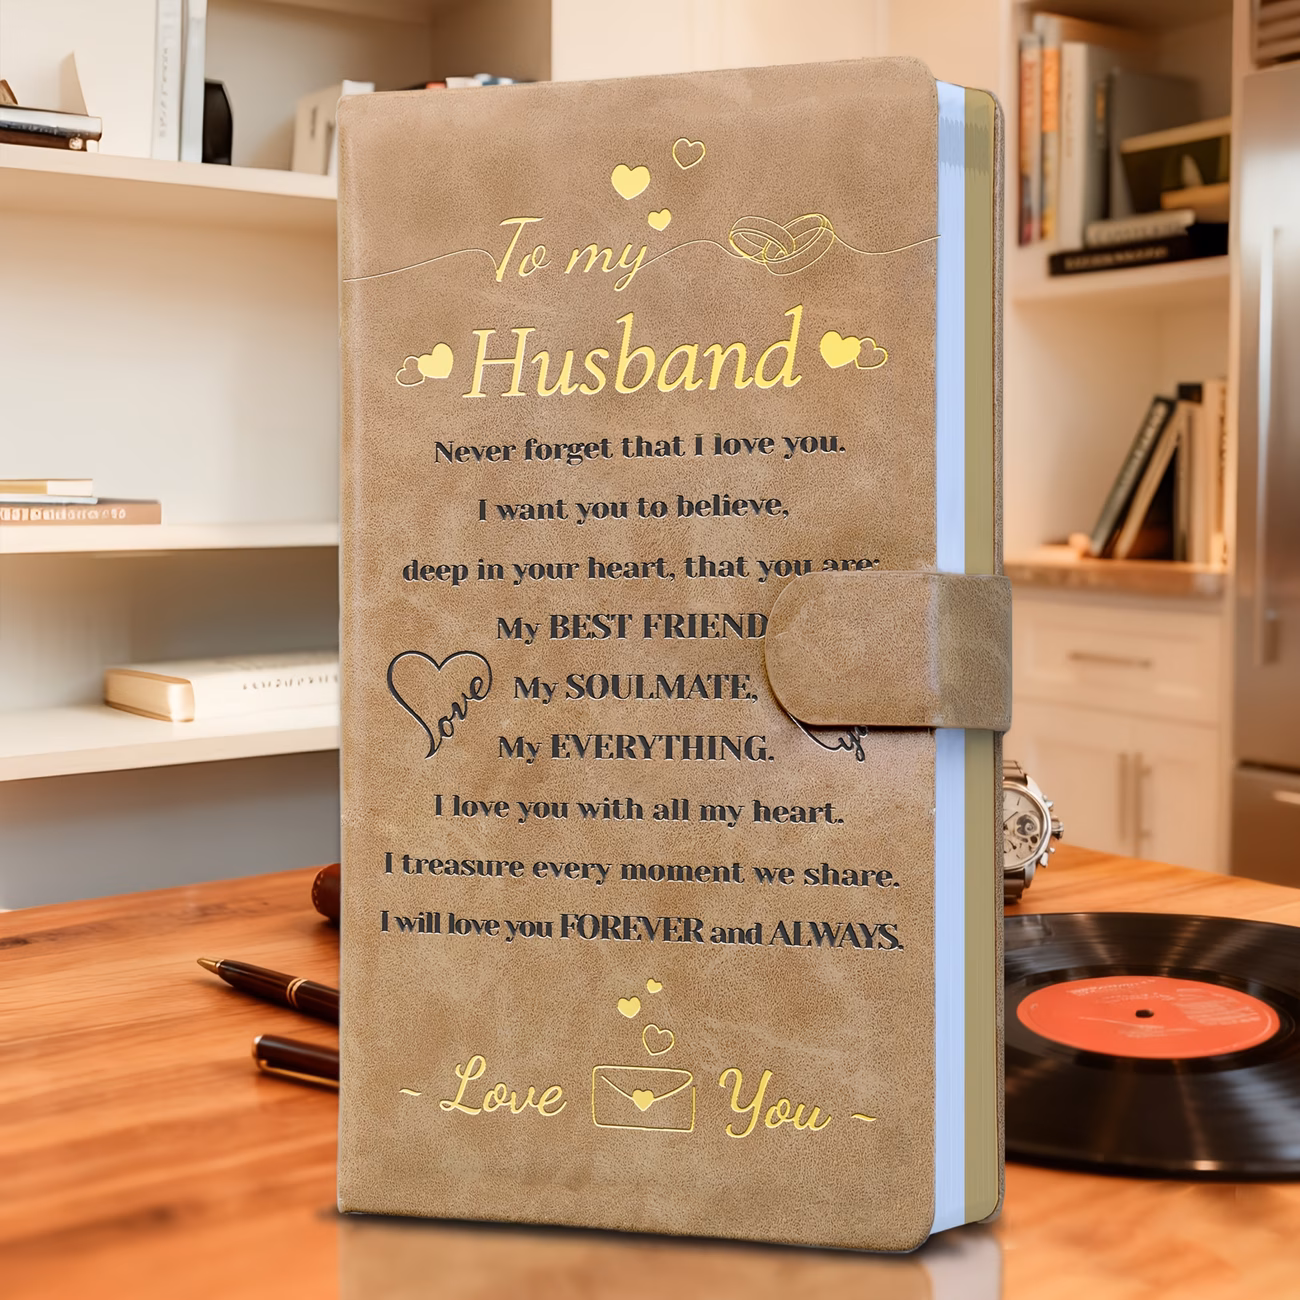 To my
Husband
Never forget that I love you.
I want you to believe,
deep in your heart, that you are:
My BEST FRIEND
My SOULMATE,
Love
My EVERYTHING.
I love you with all my heart.
I treasure every moment we share.
I will love you FOREVER and ALWAYS.
~ Love You ~